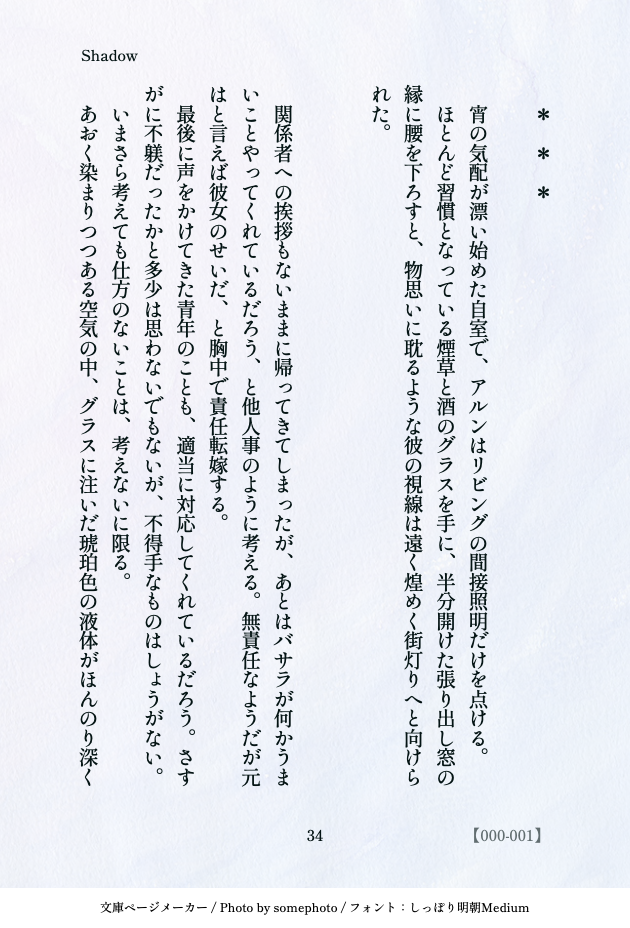 Shadow
＊　＊　＊
宵の気配が漂い始めた自室で、アルンはリビングの間接照明だけを点ける。
ほとんど習慣となっている煙草と酒のグラスを手に、半分開けた張り出し窓の
縁に腰を下ろすと、物思いに耽るような彼の視線は遠く煌めく街灯りへと向けら
れた。
関係者への挨拶もないままに帰ってきてしまったが、あとはバサラが何かうま
いことやってくれているだろう、と他人事のように考える。無責任なようだが元
はと言えば彼女のせいだ、と胸中で責任転嫁する。
最後に声をかけてきた青年のことも、適当に対応してくれているだろう。さす
がに不躾だったかと多少は思わないでもないが、不得手なものはしょうがない。
いまさら考えても仕方のないことは、考えないに限る。
あおく染まりつつある空気の中、グラスに注いだ琥珀色の液体がほんのり深く
34
【000-001】
文庫ページメーカー / Photo by somephoto / フォント：しっぽり明朝Medium